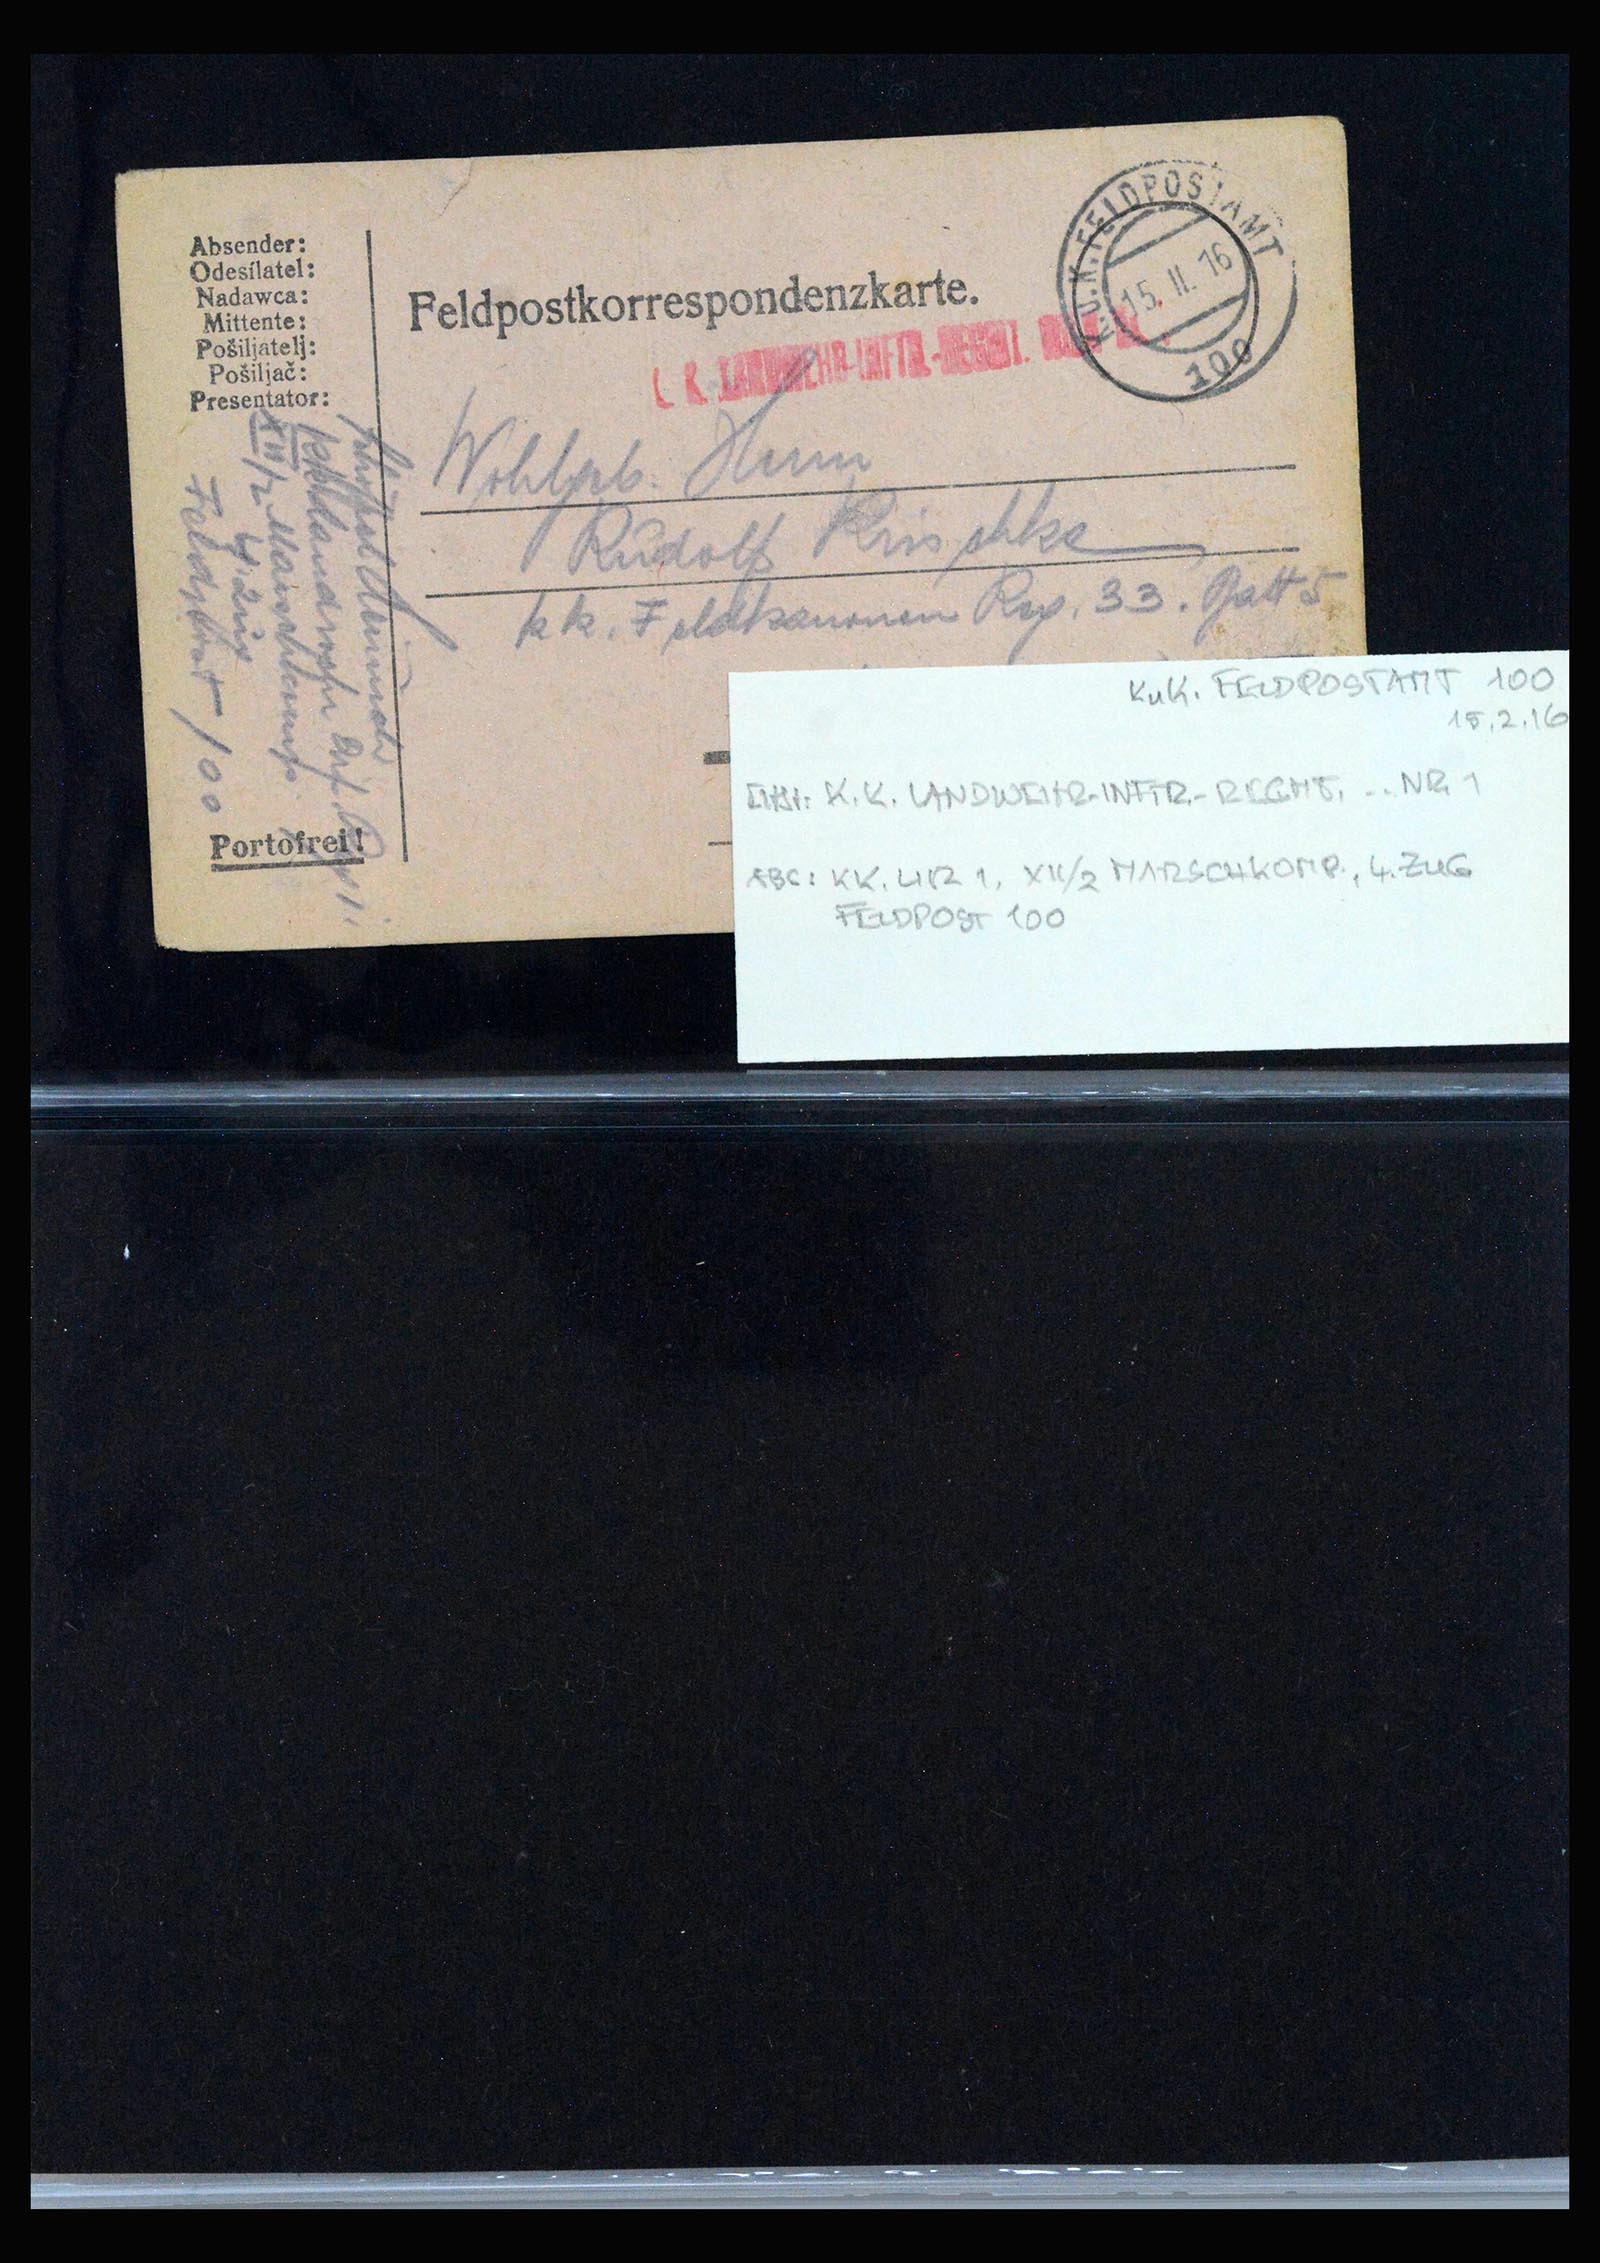 Absender:
Odesílatel:
Nadawca:
Mittente:
Pošiljatelj:
Pošiljač:
Presentator:
XII/2 Marschkomp
4. Zug
Feldpost 100
Portofrei!
Feldpostkorrespondenzkarte.
K. LANDWEHR-INFTR.-REGMT.
K.u.K. FELDPOSTAMT
15. II. 16
100
Wohlgeb. Herrn
Rudolf
k k. Feldkanonen Reg. 33. Batt 5
K.u.K. FELDPOSTAMT 100
15.2.16
K.K. LANDWEHR-INFTR.-REGMT. ... NR. 1
ABS: KK. LIR 1, XII/2 MARSCHKOMP., 4. ZUG
FELDPOST 100